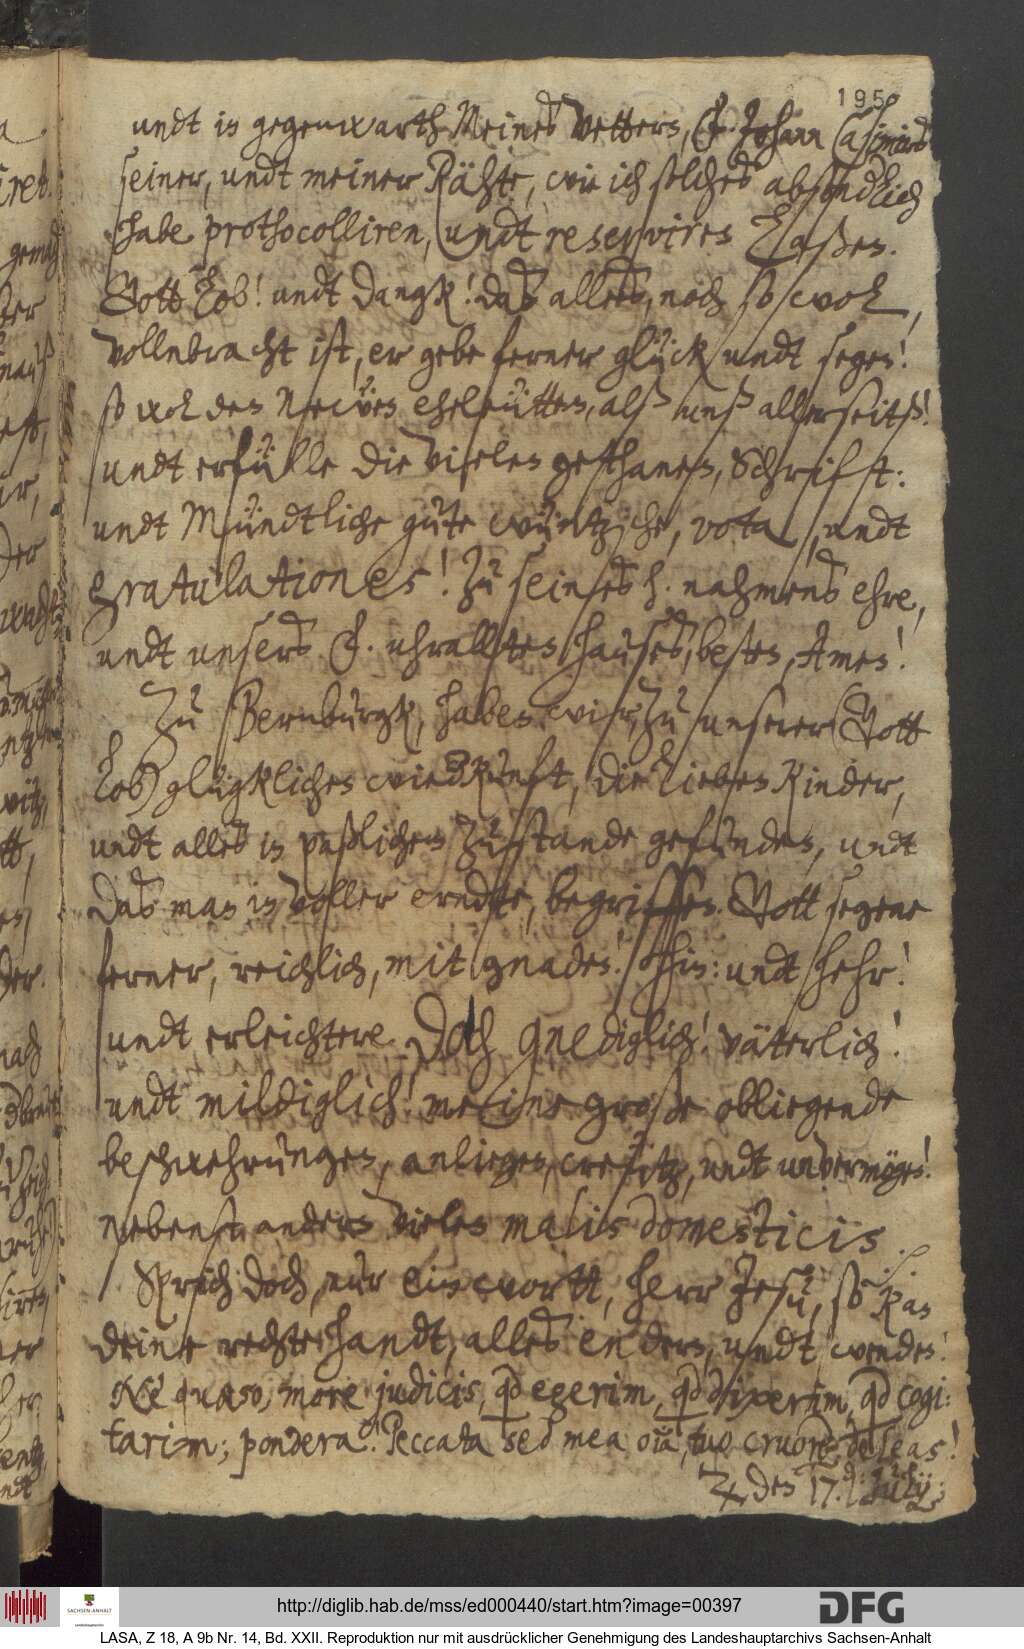 195
undt in gegenwarth Meines Vetters, F. Johann Casimirs
seiner, undt meiner Rähte, wie ich solches absondlich
habe prothocolliren, undt reserviren laßen.
Gott Lob! undt dangk! das alles, noch so wol,
vollnbracht ist, er gebe ferner glück undt segen!
so wol den Newen eheleütten, alß unß allerseitß!
undt erfülle die vielen gethanen, Schrifft:
undt Mündtliche gute wüntzsche, vota, undt
gratulationes! Zu seines h. nahmens ehre,
undt unsers F. uhralten hauses, besten, Amen!
Zu Bernburgk, haben wir, zu unserer (Gott
Lob) glügklichen wiedkunft, die lieben Kinder,
undt alles in paßlichem zustande gefunden, undt
das man in voller erndte, begriffen. Gott segene
ferner, reichlich, mit gnaden! hin: undt hehr!
undt erleichtere doch gnediglich! väterlich!
undt mildiglich! meine große obliegende
beschwehrungen, anliegen, creütz, undt unvermögen!
nebenst andern vielen malis domesticis.
Sprich doch, nur ein wortt, herr Jesu, so kan
deine rechte handt, alles endern, undt wenden!
Ne quæso, more judicis, qd egerim, qd dixerim, qd cogi:
tarim; pondera! Peccata sed mea oia, tuo cruore deleas!
♃ den 17. Julij:
http://diglib.hab.de/mss/ed000440/start.htm?image=00397
SACHSEN-ANHALT
DFG
LASA, Z 18, A 9b Nr. 14, Bd. XXII. Reproduktion nur mit ausdrücklicher Genehmigung des Landeshauptarchivs Sachsen-Anhalt